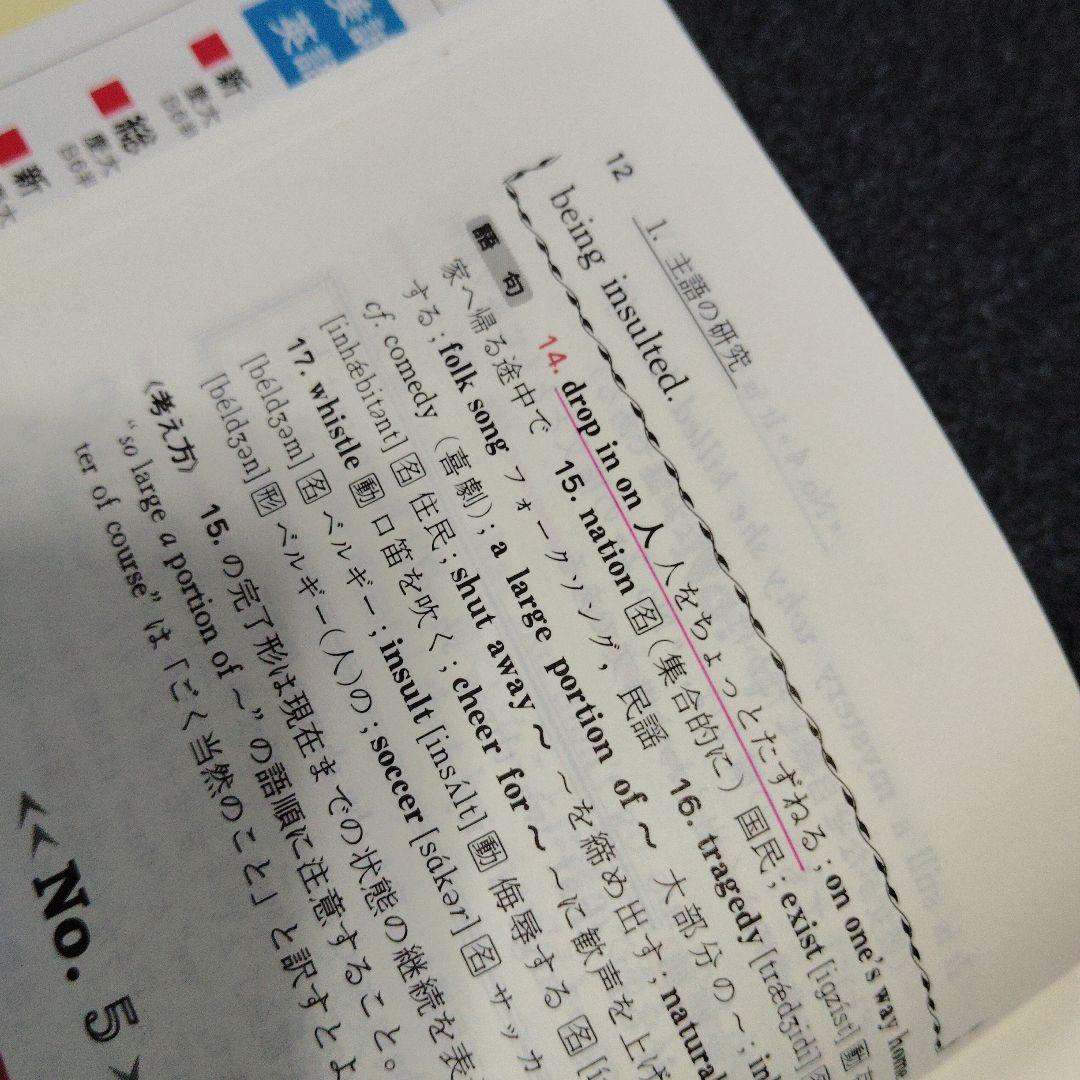 英語
英語
新
総
新
12
1. 主語の研究
being insulted.
語句
14. drop in on 人 人をちょっとたずねる; on one's way home
家へ帰る途中で 15. nation 名 (集合的に) 国民; exist [igzíst] 動
する; folk song フォークソング, 民謡 16. tragedy [trǽdʒidi] 名
cf. comedy (喜劇); a large portion of ~ 大部分の~;
[inhǽbitənt] 名 住民; shut away ~ ~を締め出す; natural
17. whistle 動 口笛を吹く; cheer for ~ ~に歓声を上げ
[béldʒəm] 名 ベルギー; insult [insʌ́lt] 動 侮辱する 名
[béldʒən] 形 ベルギー(人)の; soccer [sákər] 名 サッカ
《考え方》 15. の完了形は現在までの状態の継続を表
“so large a portion of ~”の語順に注意すること。
ter of course”は「ごく当然のこと」と訳すとよ
≪No. 5